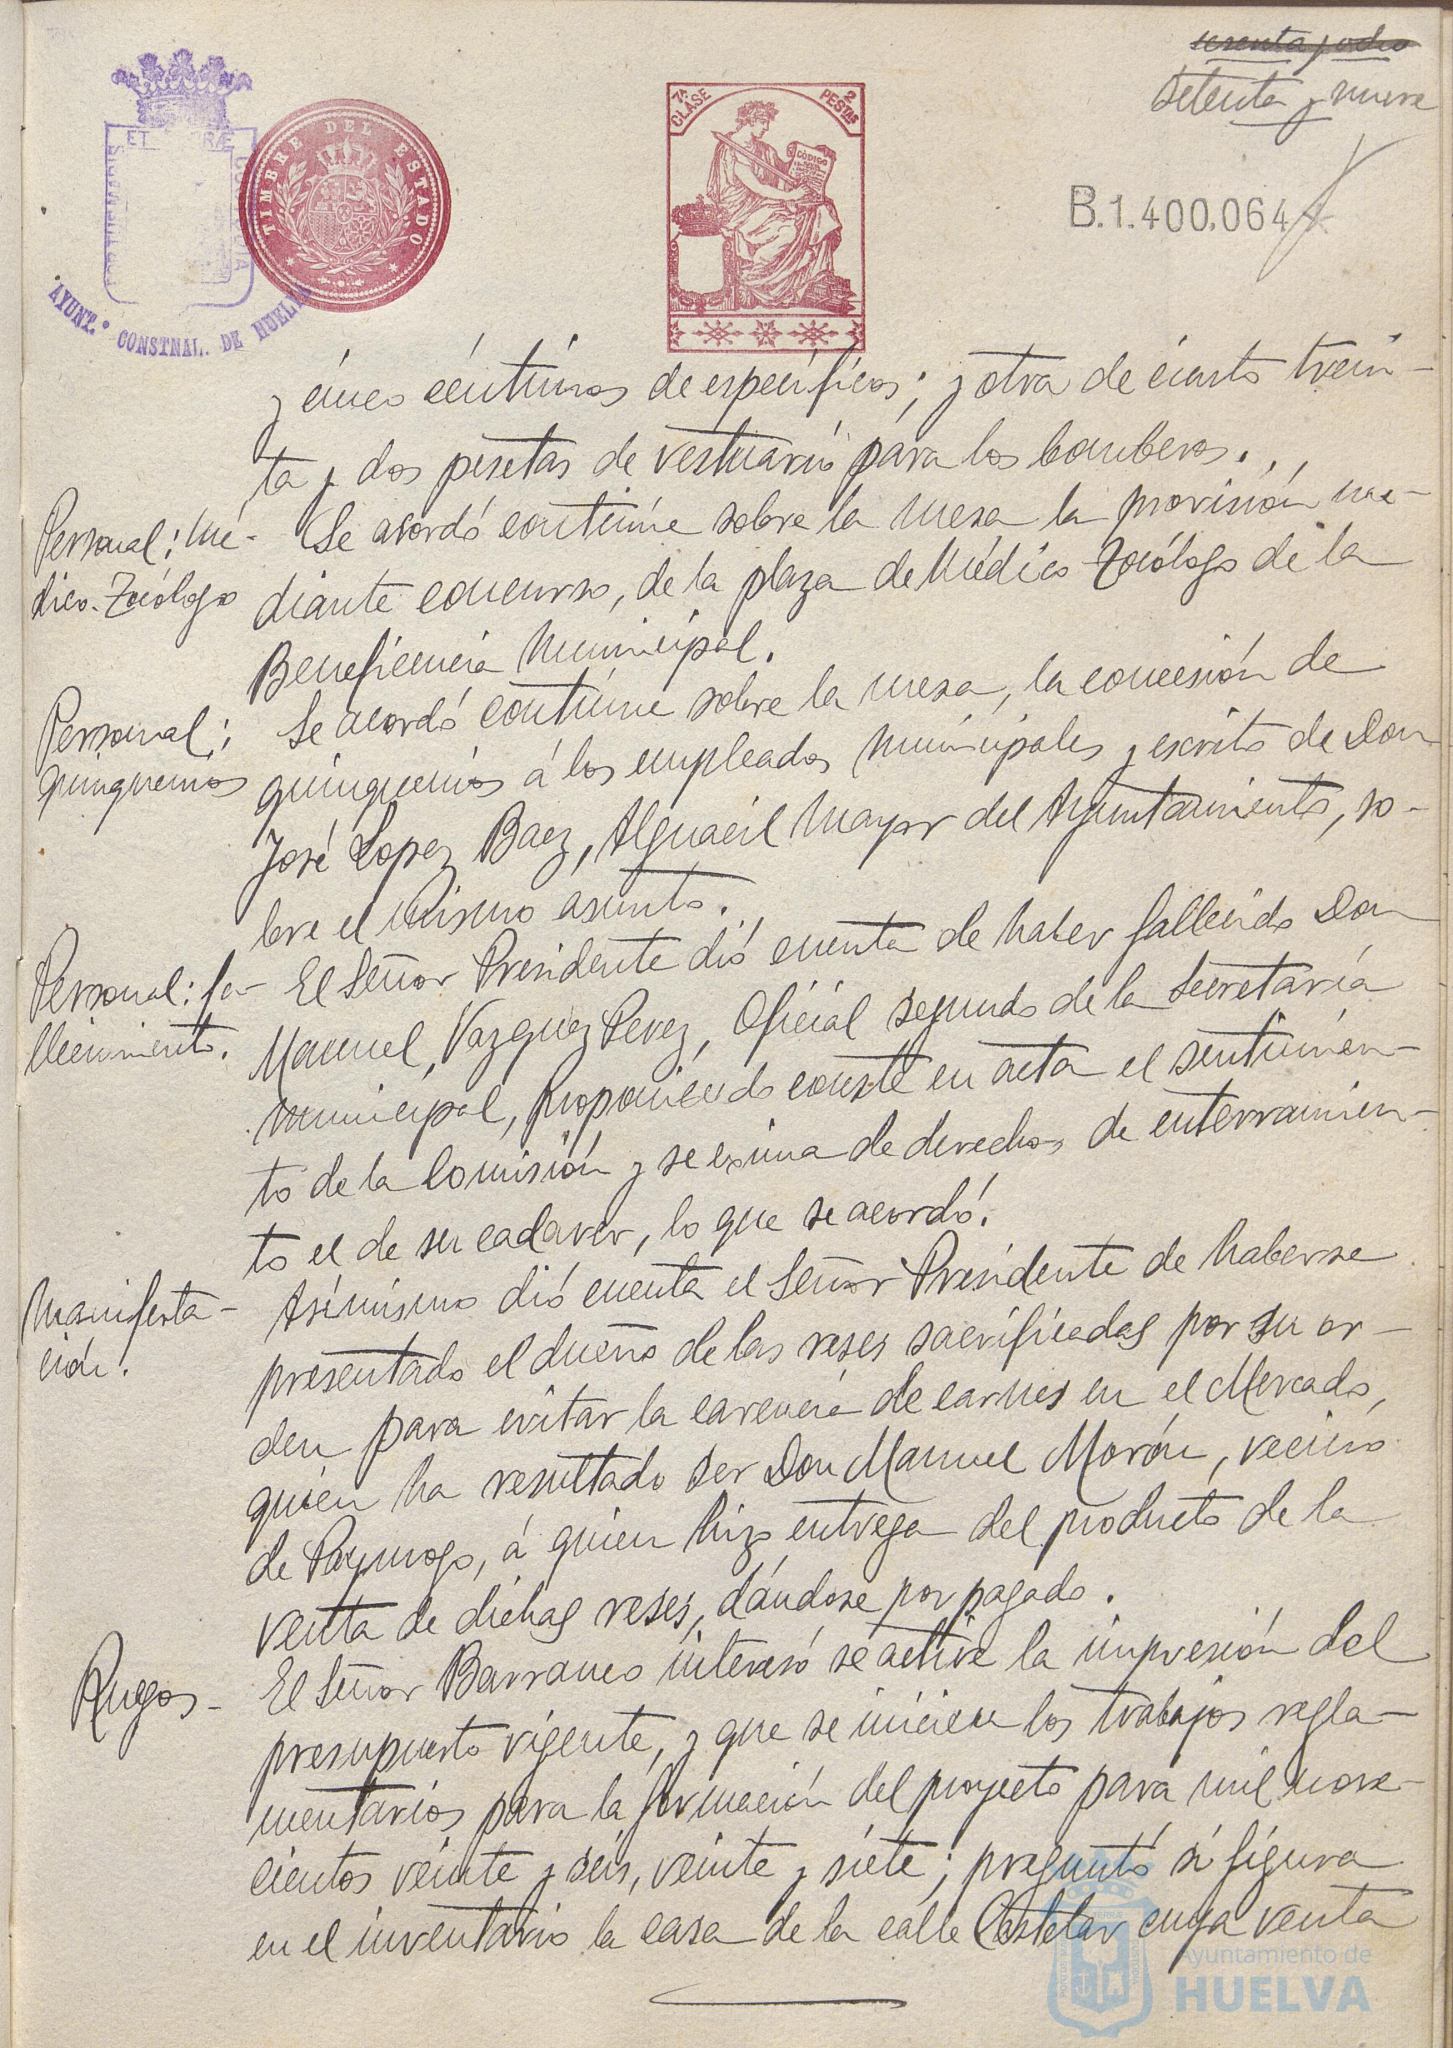 sesenta y ocho
setenta y nueve
7ª CLASE
2 PESETAS
CODIGO
TIMBRE DEL ESTADO
AYUNT.º CONSTNAL. DE HUELVA
B.1.400.064
y cinco céntimos de específicos; y otra de ciento trein-
ta y dos pesetas de vestuario para los bomberos.
Personal: Mé-
dico-Tocólogo
Se acordó continúe sobre la mesa la provisión me-
diante concurso, de la plaza de Médico Tocólogo de la
Beneficencia Municipal.
Personal:
quinquenios
Se acordó continúe sobre la mesa, la concesión de
quinquenios á los empleados municipales y escrito de Don
José Lopez Baez, Alguacil Mayor del Ayuntamiento, so-
bre el mismo asunto.
Personal: fa-
llecimiento.
El Señor Presidente dió cuenta de haber fallecido Don
Manuel Vazquez Perez, Oficial segundo de la Secretaría
municipal, proponiendo conste en acta el sentimien-
to de la Comisión y se exima de derechos de enterramien-
to el de su cadaver, lo que se acordó.
Manifesta-
ción.
Asimismo dió cuenta el Señor Presidente de haberse
presentado el dueño de las reses sacrificadas por su or-
den para evitar la carencia de carnes en el Mercado,
quien ha resultado ser Don Manuel Morón, vecino
de Paymogo, á quien hizo entrega del producto de la
venta de dichas reses, dándose por pagado.
Ruegos-
El Señor Barranco interesó se active la impresión del
presupuesto vigente, y que se inicien los trabajos regla-
mentarios para la formación del proyecto para mil nove-
cientos veinte y seis, veinte y siete; preguntó si figura
en el inventario la casa de la calle Castelar cuya venta
Ayuntamiento de
HUELVA